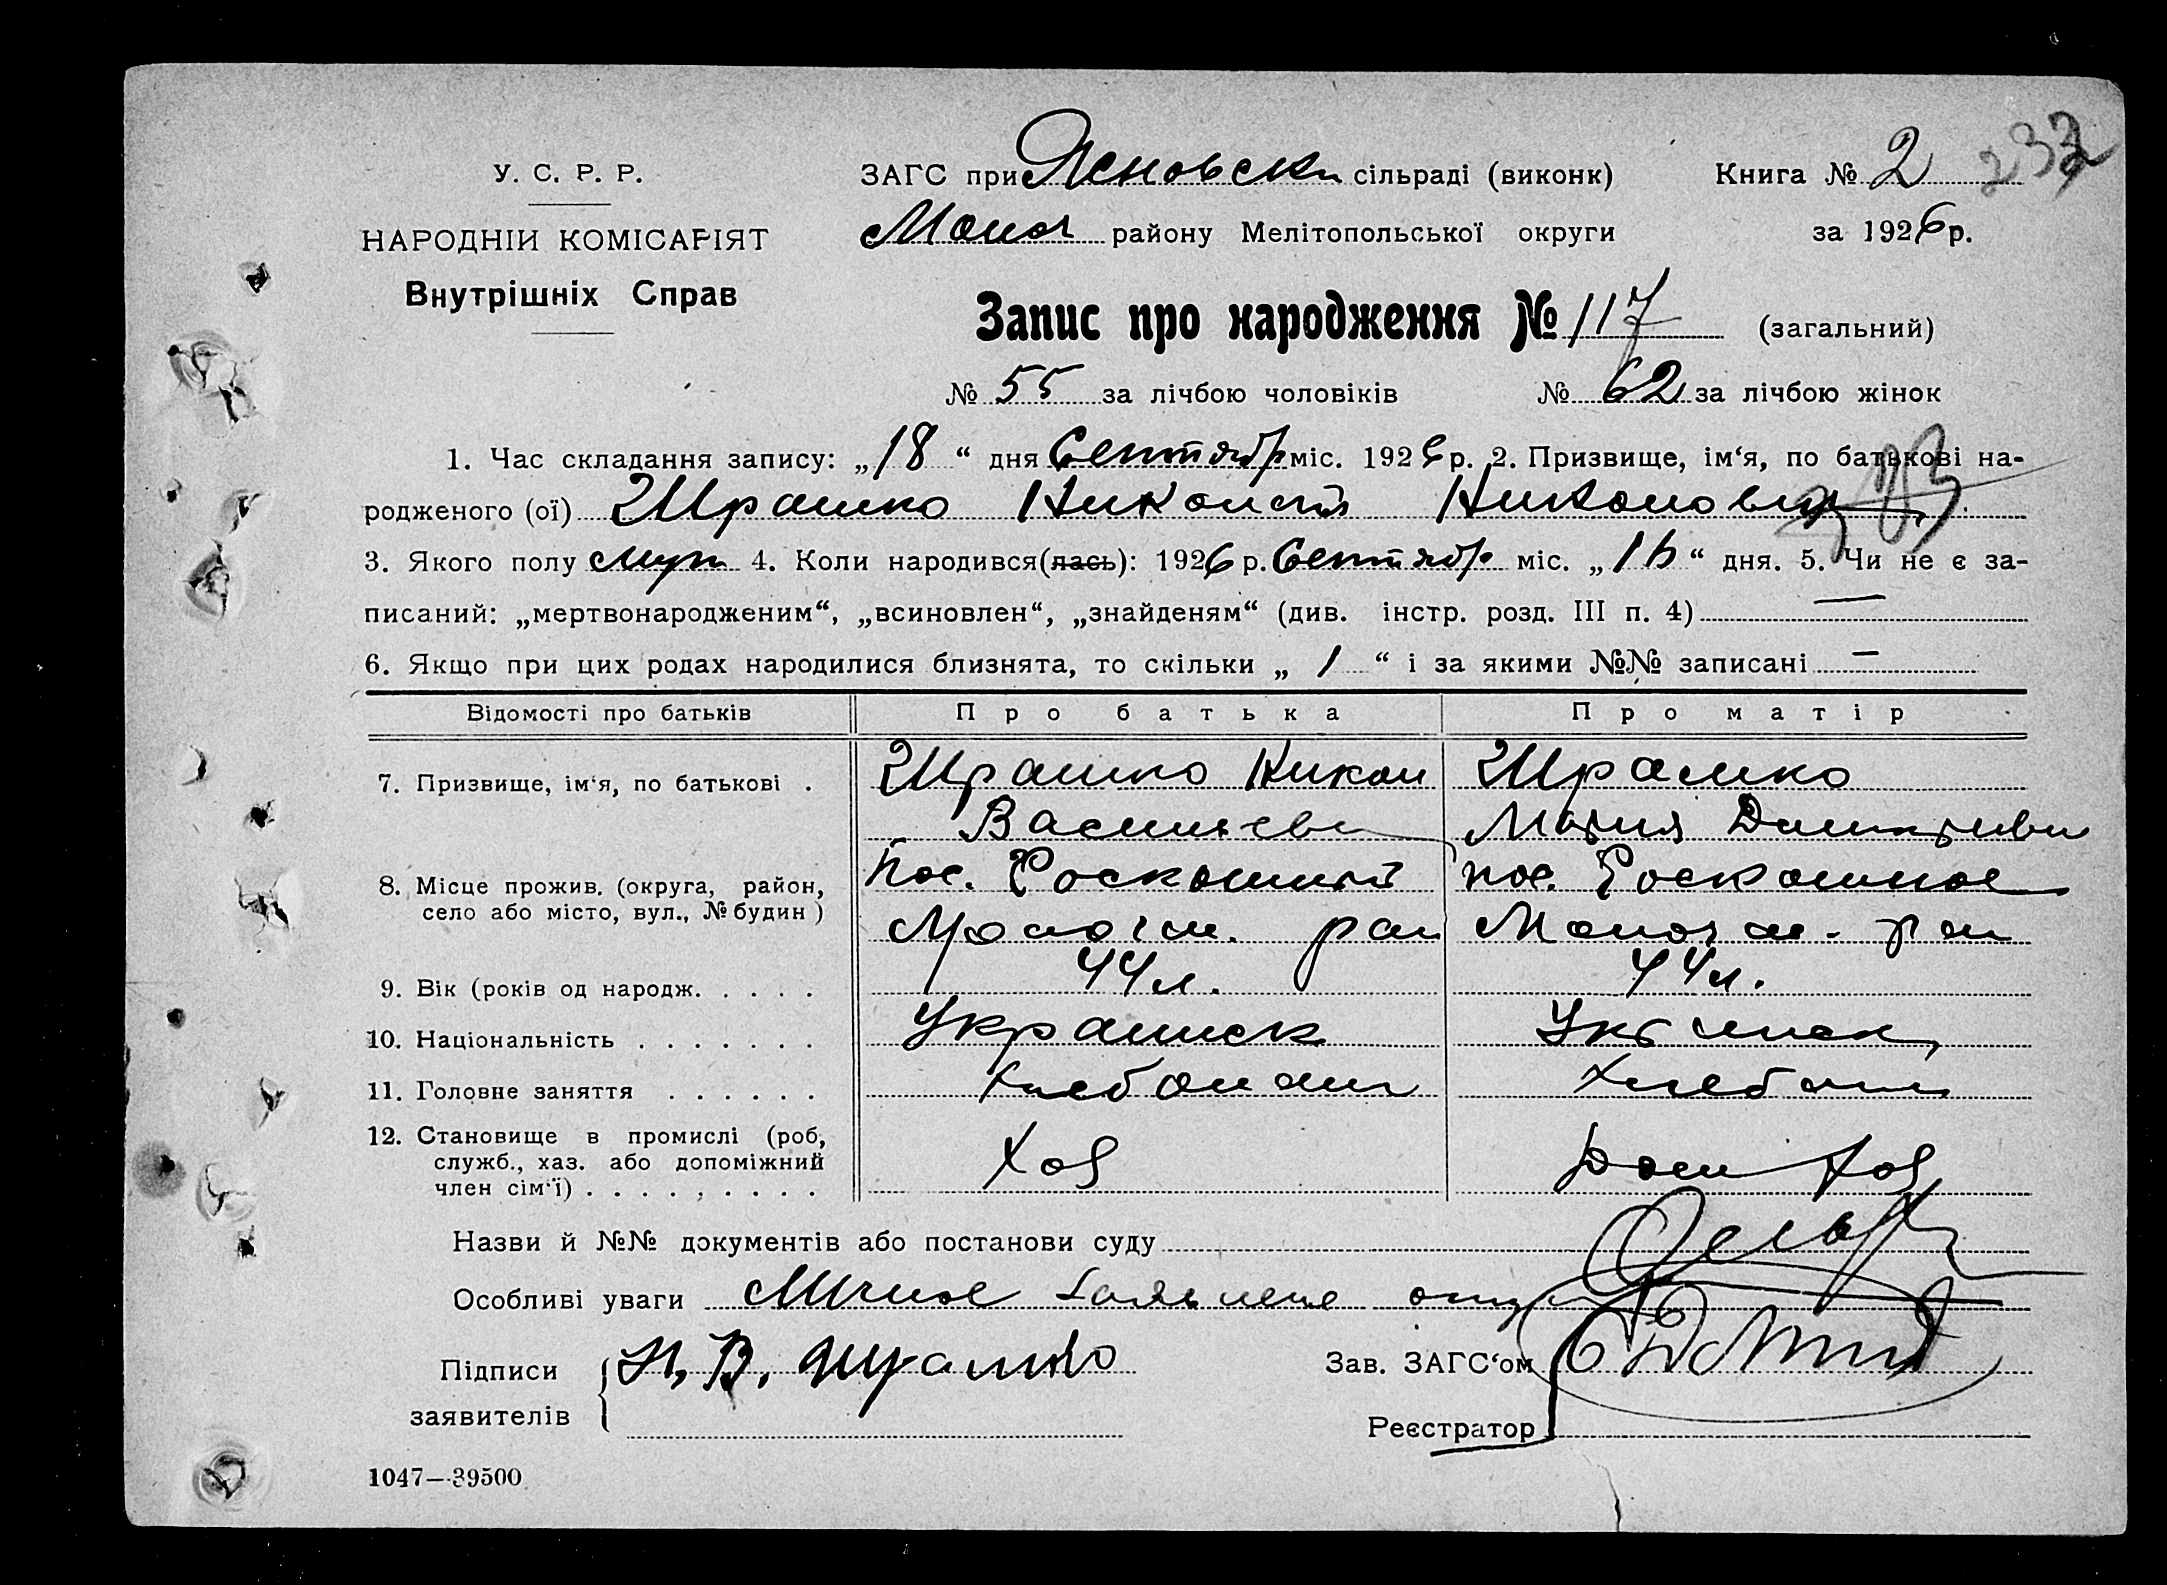 У. С. Р. Р.
НАРОДНІИ КОМІСАРІЯТ
Внутрішніх Справ
ЗАГС при Ясновски сільраді (виконк)
Книга № 2
району Мелітопольської округи
за 1926 р.
Запис про народження № 117 (загальний)
№ 55 за лічбою чоловіків № 62 за лічбою жінок
1. Час складання запису: „18“ дня Сентябр міс. 1926 р. 2. Призвище, ім‘я, по батькові на-
родженого (ої) Шрамко Никонович
3. Якого полу муж 4. Коли народився(лась): 1926 р. Сентябр міс. „ “ дня. 5. Чи не є за-
писаний: „мертвонародженим“, „всиновлен“, „знайденям“ (див. інстр. розд. III п. 4) —
6. Якщо при цих родах народилися близнята, то скільки „ 1 “ і за якими №№ записані —
Відомості про батьків Про батька Про матір
7. Призвище, ім‘я, по батькові . Шрамко Никон Шрамко
Васильеви Мария Дмитриевн
8. Місце прожив. (округа, район, пос. Роскошный пос. Роскошное
село або місто, вул., № будин ) рай
9. Вік (років од народж. . . . . 44 л. 44 л.
10. Національність . . . . . . . Украинск
11. Головне заняття . . . . . . Хлебопаш Хлебопаш
12. Становище в промислі (роб, Хоз Дом Хоз
служб., хаз. або допоміжний
член сім‘ї) . . . . , . . . .
Назви й №№ документів або постанови суду
Особливі уваги Личное заявление отца
Підписи Н. В. Шрамко
заявителів
Зав. ЗАГС‘ом
Реєстратор
1047—39500